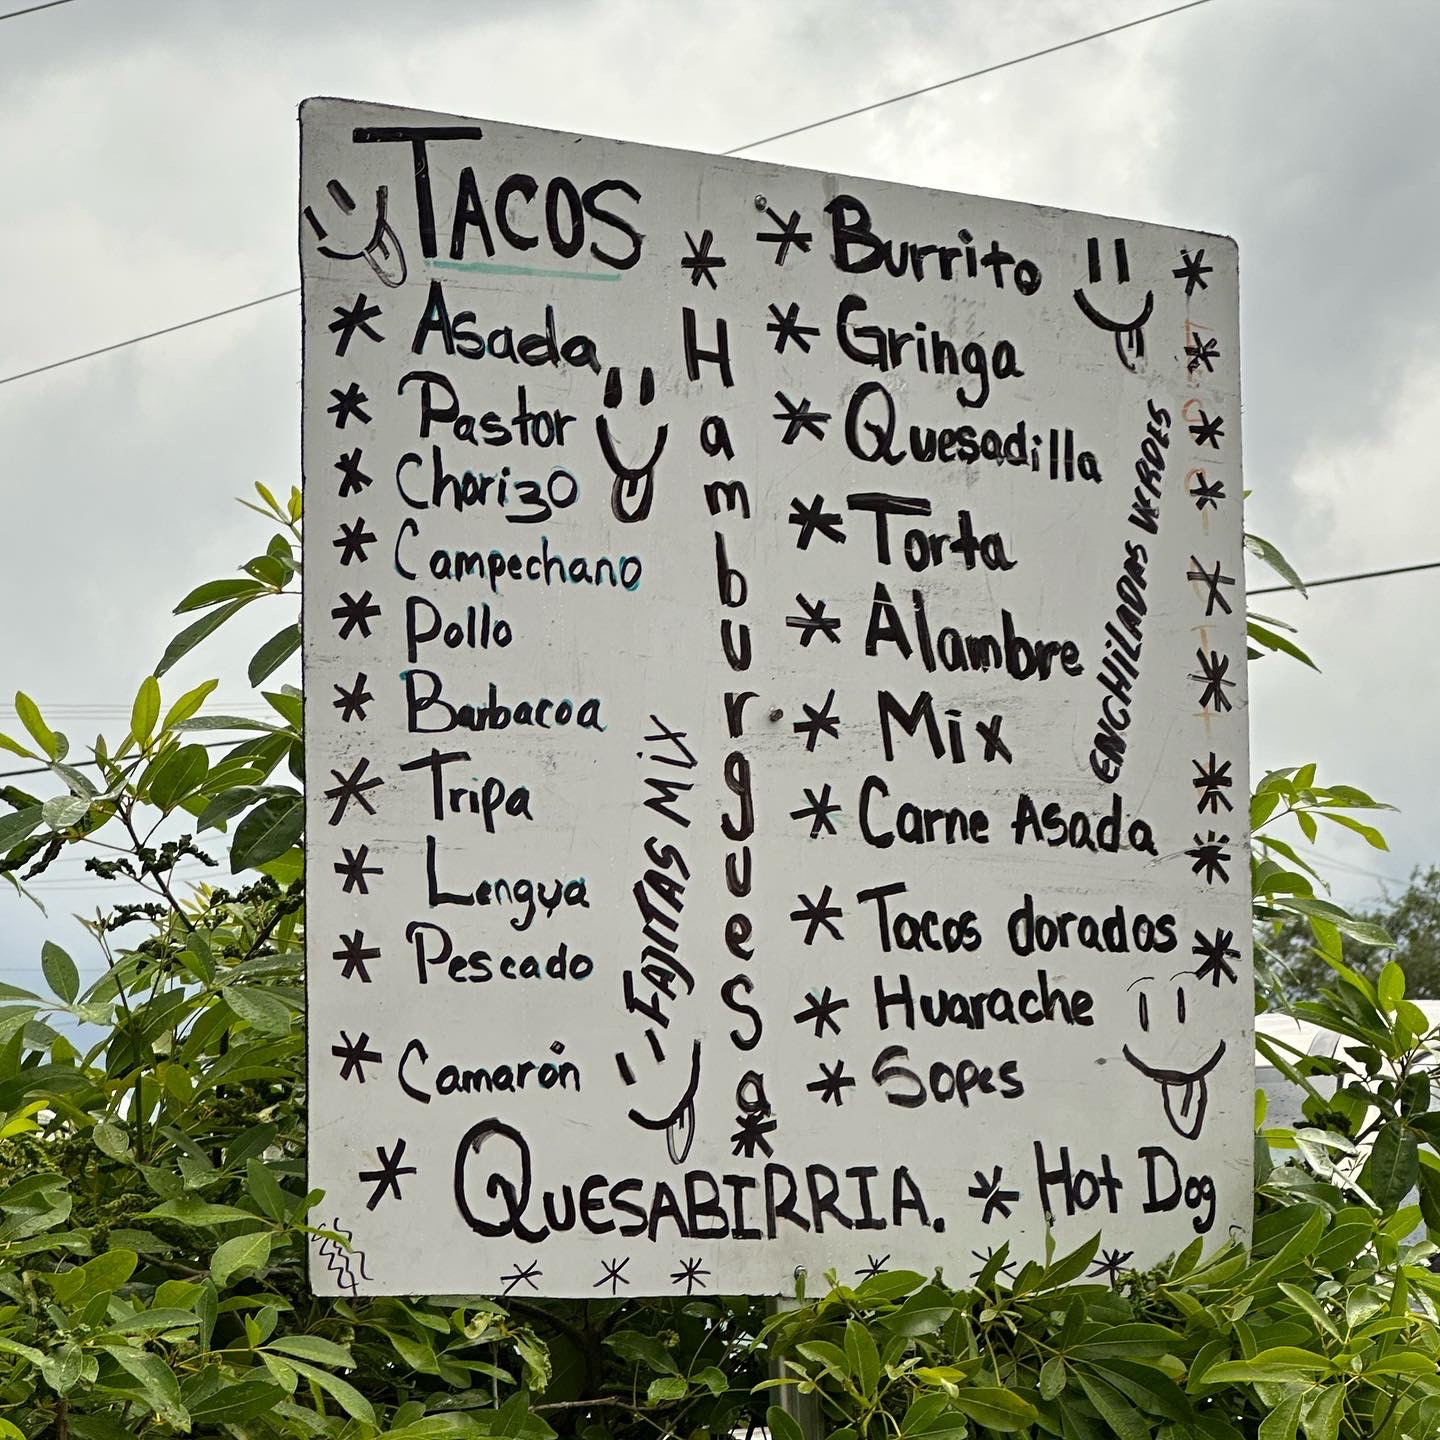 TACOS
Asada
Pastor
Chorizo
Campechano
Pollo
Barbacoa
Tripa
Lengua
Pescado
Camarón
FAJITAS MIX
HamburgueSa
Burrito
Gringa
Quesadilla
Torta
Alambre
Mix
Carne Asada
Tacos dorados
Huarache
Sopes
ENCHILADAS VERDES
QUESABIRRIA.
Hot Dog